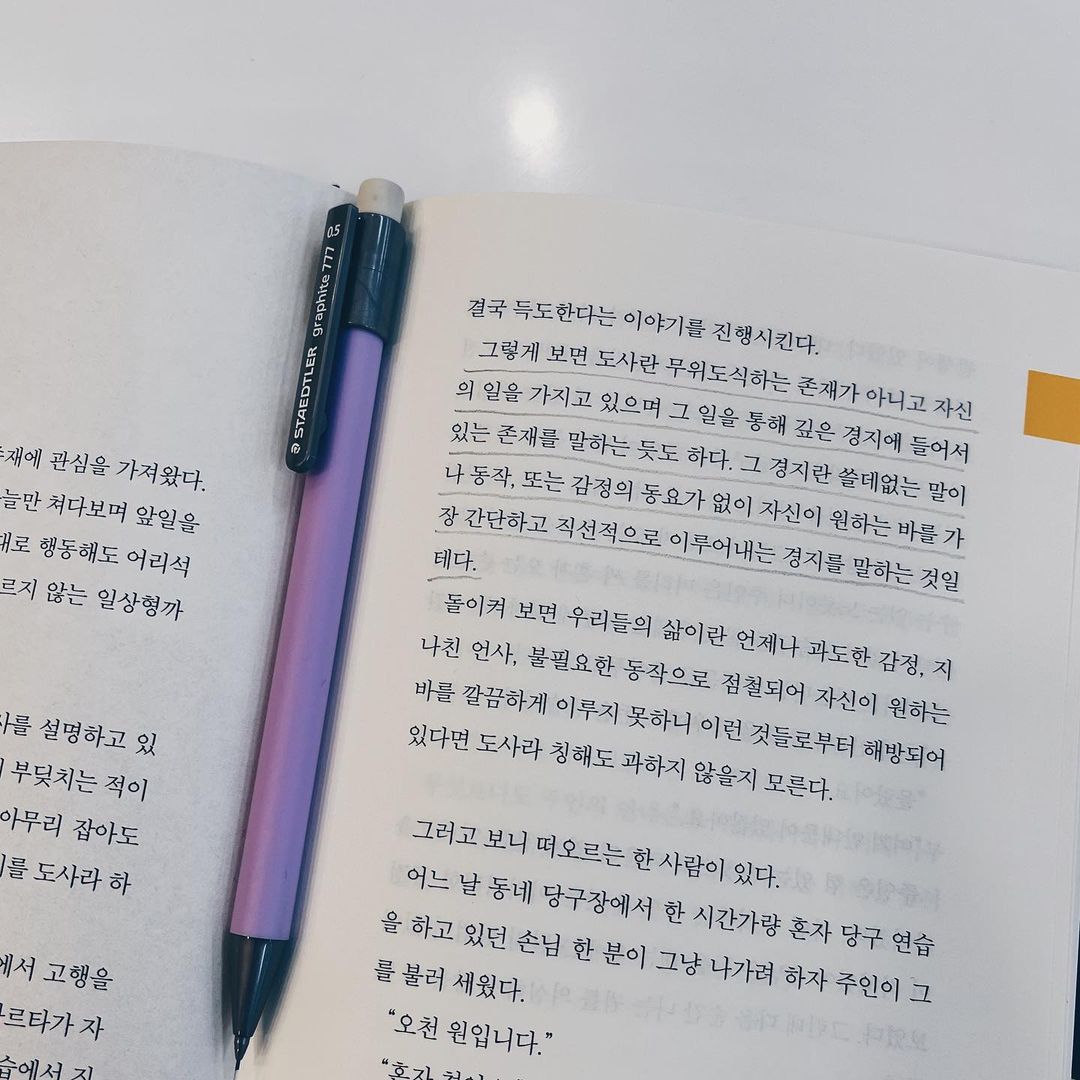 관심을 가져왔다.
쳐다보며 앞일을
행동해도 어리석
않는 일상형까
설명하고 있
부딪치는 적이
아무리 잡아도
도사라 하
고행을
자
STAEDTLER graphite 777 0.5
결국 득도한다는 이야기를 진행시킨다.
그렇게 보면 도사란 무위도식하는 존재가 아니고 자신
의 일을 가지고 있으며 그 일을 통해 깊은 경지에 들어서
있는 존재를 말하는 듯도 하다. 그 경지란 쓸데없는 말이
나 동작, 또는 감정의 동요가 없이 자신이 원하는 바를 가
장 간단하고 직선적으로 이루어내는 경지를 말하는 것일
테다.
돌이켜 보면 우리들의 삶이란 언제나 과도한 감정, 지
나친 언사, 불필요한 동작으로 점철되어 자신이 원하는
바를 깔끔하게 이루지 못하니 이런 것들로부터 해방되어
있다면 도사라 칭해도 과하지 않을지 모른다.
그러고 보니 떠오르는 한 사람이 있다.
어느 날 동네 당구장에서 한 시간가량 혼자 당구 연습
을 하고 있던 손님 한 분이 그냥 나가려 하자 주인이 그
를 불러 세웠다.
“오천 원입니다.”
“혼자